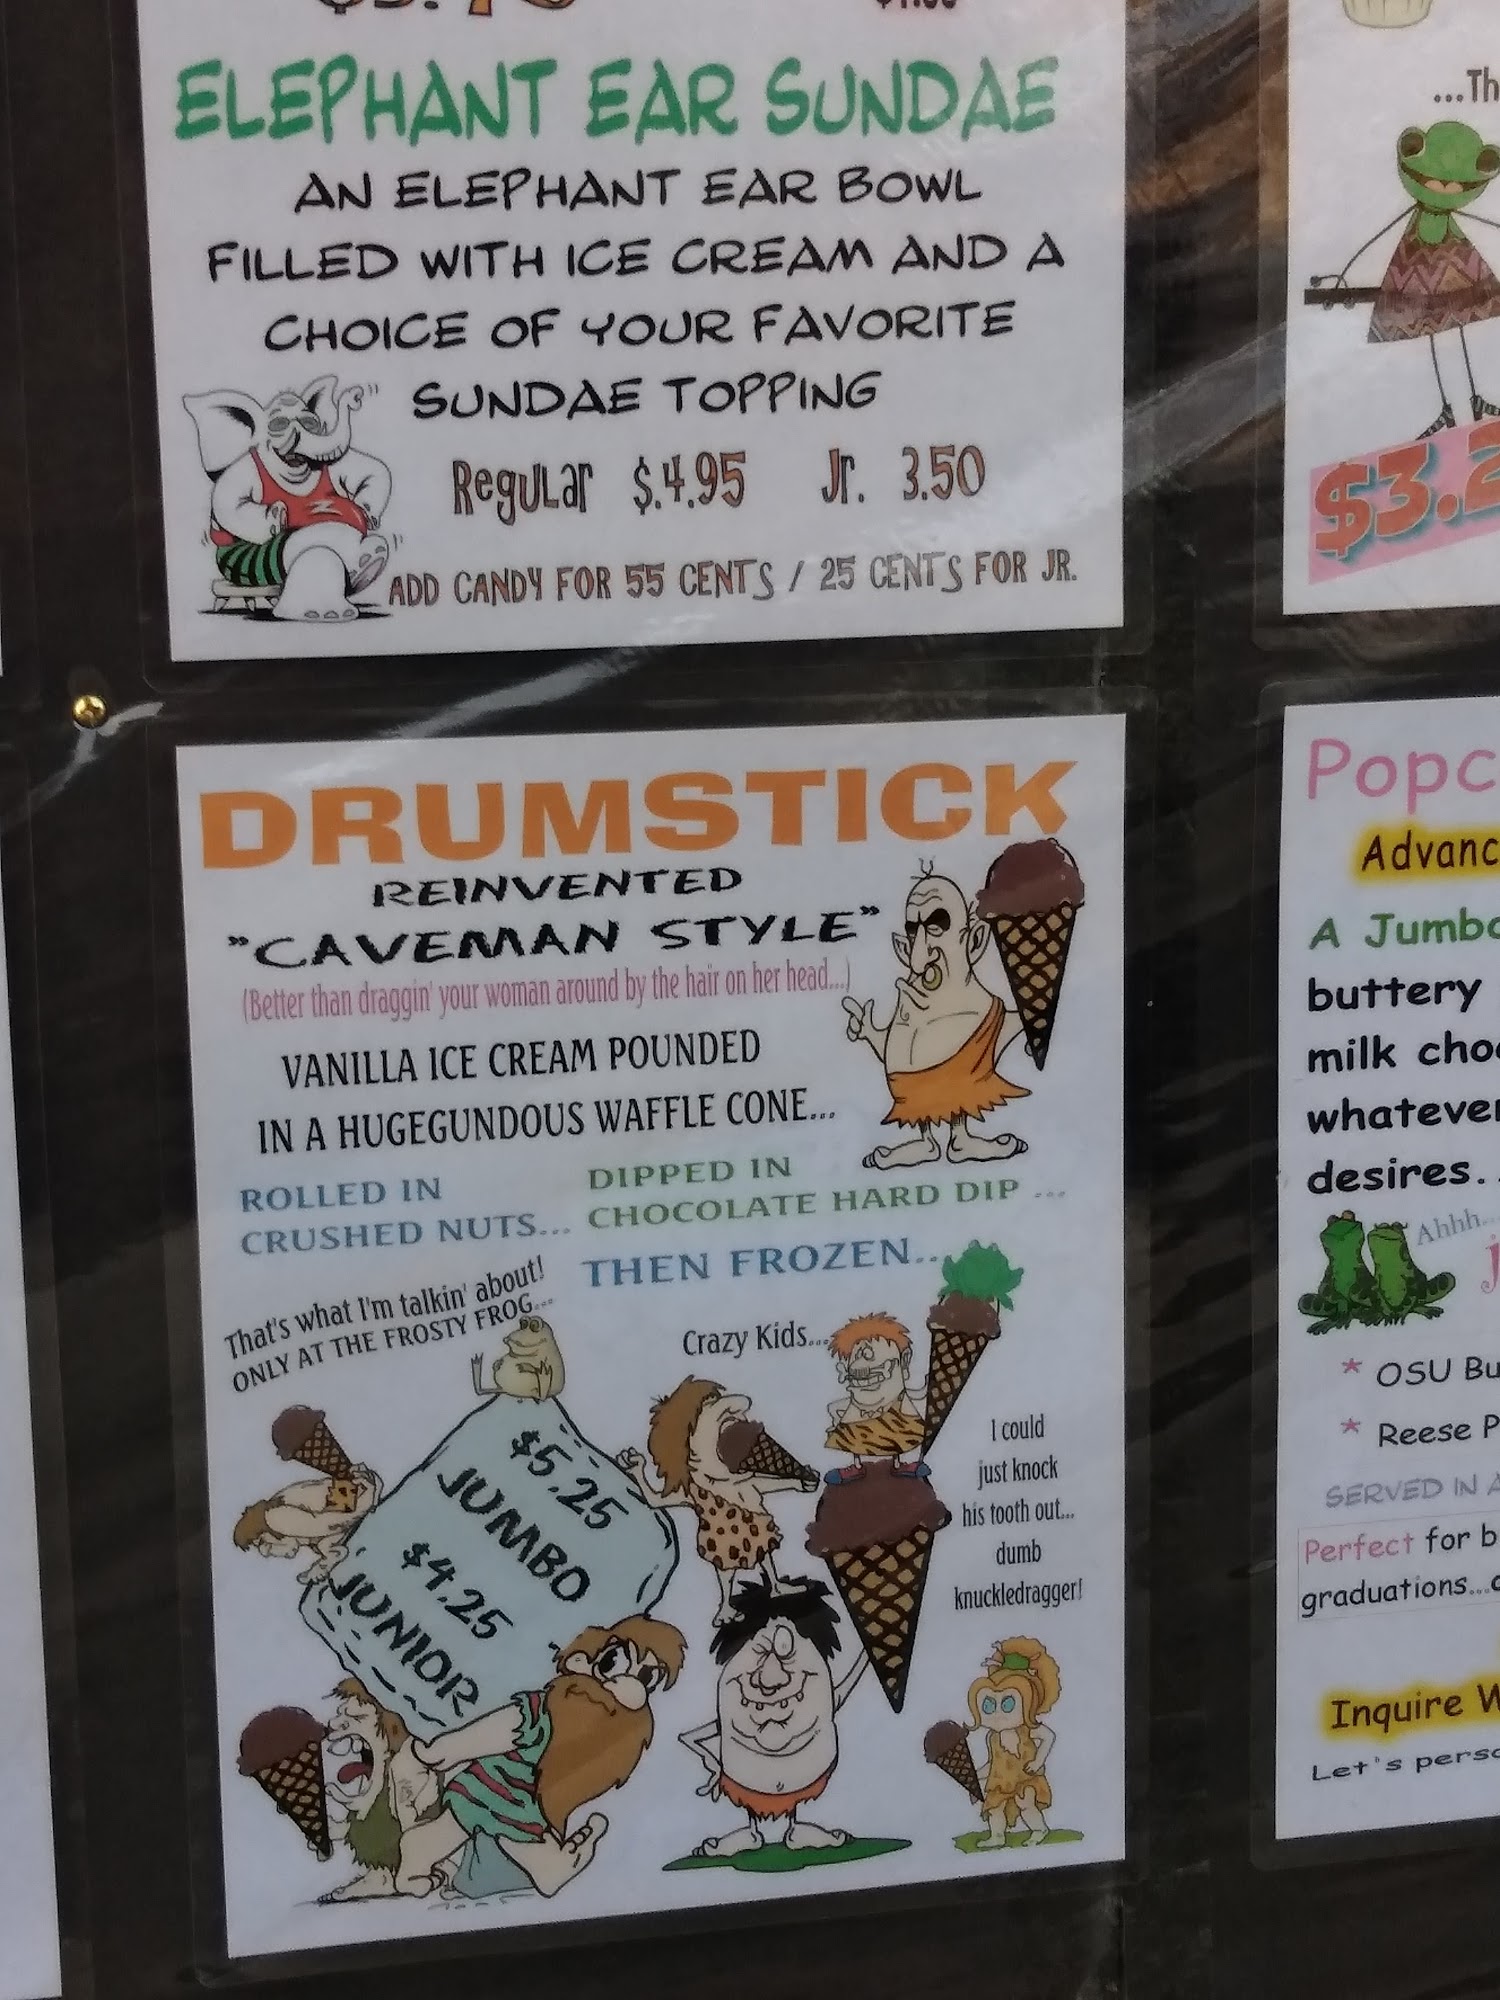 ELEPHANT EAR SUNDAE
AN ELEPHANT EAR BOWL
FILLED WITH ICE CREAM AND A
CHOICE OF YOUR FAVORITE
SUNDAE TOPPING
Regular $.4.95 Jr. 3.50
ADD CANDY FOR 55 CENTS / 25 CENTS FOR JR.
DRUMSTICK
REINVENTED
"CAVEMAN STYLE"
(Better than draggin' your woman around by the hair on her head...)
VANILLA ICE CREAM POUNDED
IN A HUGEGUNDOUS WAFFLE CONE...
ROLLED IN
CRUSHED NUTS...
DIPPED IN
CHOCOLATE HARD DIP ...
THEN FROZEN...
That's what I'm talkin' about!
ONLY AT THE FROSTY FROG...
Crazy Kids...
$5.25
JUMBO
$4.25
JUNIOR
I could
just knock
his tooth out...
dumb
knuckledragger!
...Th
$3.2
Popc
Advanc
A Jumbo
buttery
milk choc
whatever
desires..
Ahhh...
* OSU Bu
* Reese P
SERVED IN A
Perfect for b
graduations...
Inquire W
Let's perso